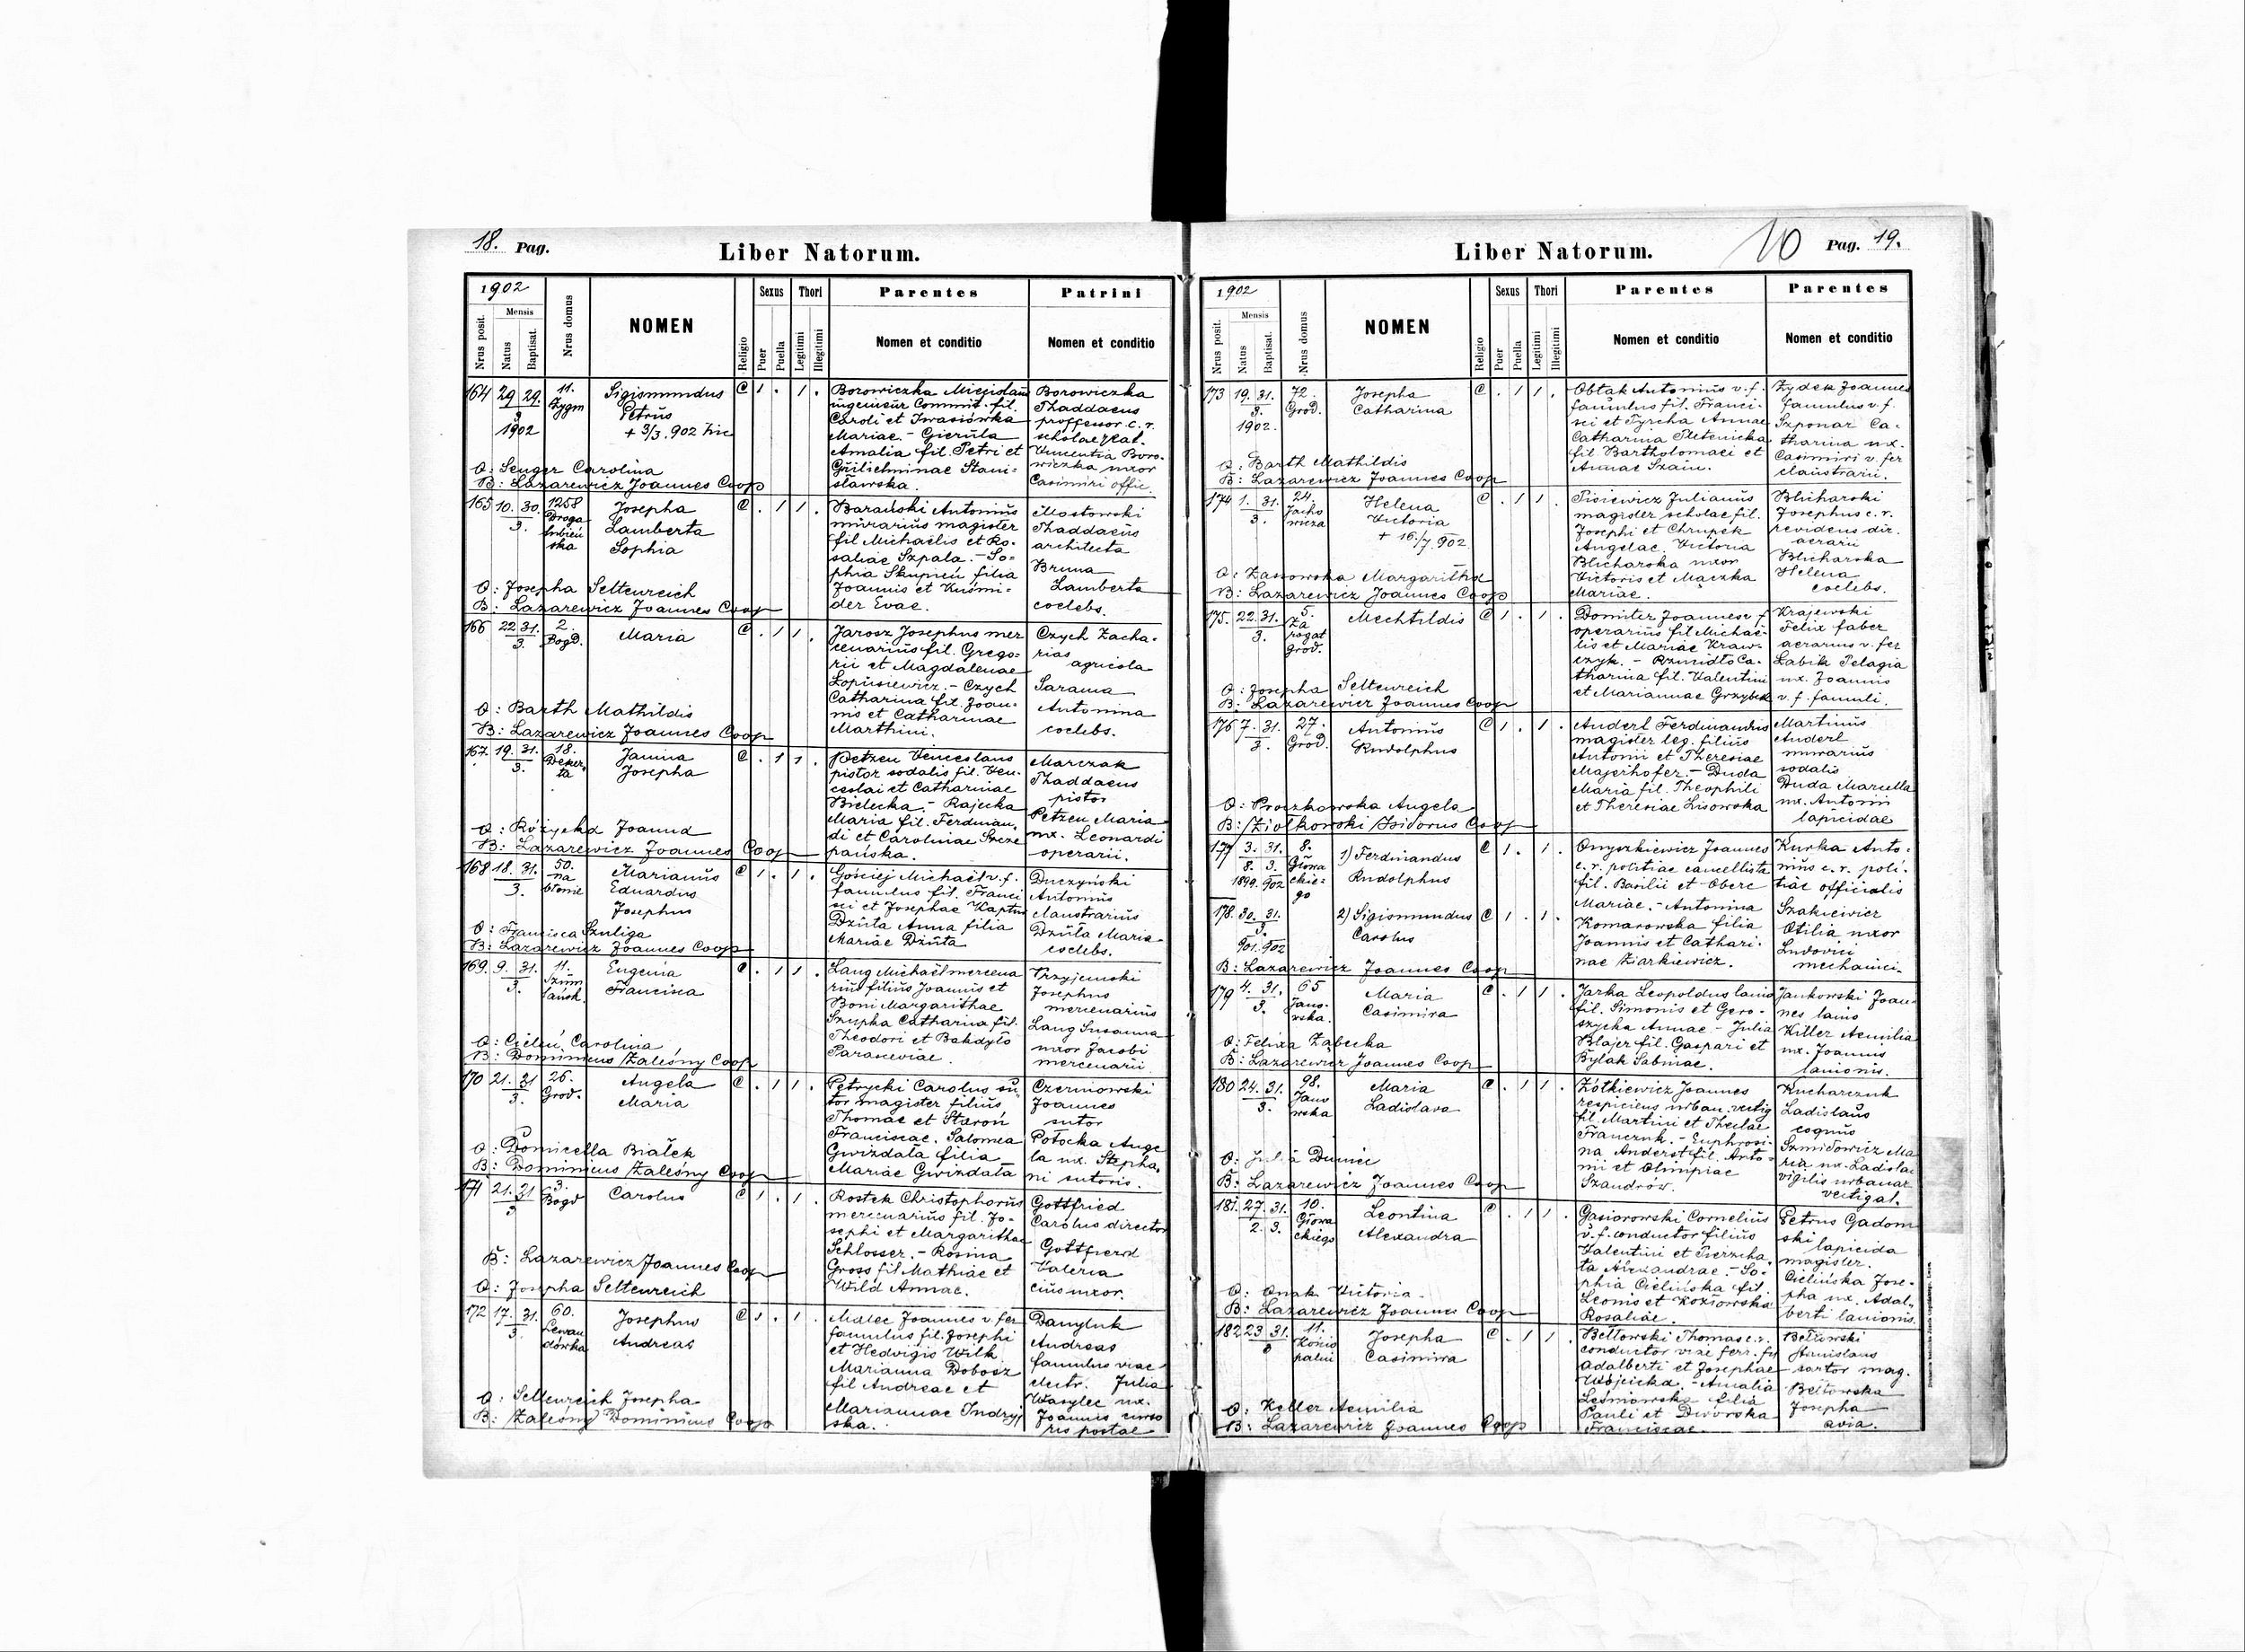 18. Pag.
Liber Natorum.
1902
Nrus posit.
Mensis
Natus
Baptisat.
Nrus domus
NOMEN
Religio
Sexus
Puer
Puella
Thori
Legitimi
Illegitimi
Parentes
Nomen et conditio
Patrini
Nomen et conditio
164 29 29. 11. Sigismundus C 1 . 1 .
3 Zygm Petrus
1902 + 3/3. 902
O: Senger Carolina
B: Lazarewicz Joannes Coop
Borowiczka
ingenieur Commit. fil.
Caroli et Iwasiówka
Mariae. - Gierula
Amalia fil. Petri et
Stani=
sławska.
Borowiczka
Thaddaeus
proffessor c. r.
scholae real.
Vincentia Boro-
wiczka uxor
Casimiri offic.
165 10. 30. 1258 Josepha C . 1 1 .
3. Droga Lamberta
ska Sophia
O: Josepha Seltenreich
B: Lazarewicz Joannes Coop
Barański Antonius
murarius magister
fil Michaelis et Ro-
saliae Szpala. - So=
phia Skupień filia
Joannis et Kuśmi-
der Evae.
Mostowski
Thaddaeus
architecta
Bruna
Lamberta
coelebs.
166 22 31. 2. Maria C . 1 1 .
3. Bogd.
O: Barth Mathildis
B: Lazarewicz Joannes Coop
Jarosz Josephus mer
cenarius fil. Grego=
rii et Magdalenae
Łopusiewicz. - Czych
Catharina fil. Joan-
nis et Catharinae
Marthini.
Czych Zacha-
rias
agricola
Sarama
Antonina
coelebs.
167. 19. 31. 18. Janina C . 1 1 .
3. Deker- Josepha
ta
O: Różycka Joanna
B: Lazarewicz Joannes Coop
Petzen Venceslaus
pistor sodalis fil. Ven-
ceslai et Catharinae
Bielecka. - Rajecka
Maria fil. Ferdinan-
di et Carolinae Szcze
pańska.
Marczak
Thaddaeus
pistor
Petzen Maria
ux. Leonardi
operarii.
168 18. 31. 50. Marianus C 1 . 1 .
3. na Eduardus
błonie Josephus
O: Francisca Szuliga
B: Lazarewicz Joannes Coop
Gościej Michaël v. f.
famulus fil. Franci
sci et Josephae Kaptur
Dziuta Anna filia
Mariae Dziuta
Duczyński
Antonius
claustrarius
Dziuta Maria
coelebs.
169. 9. 31. 11. Eugenia C . 1 1 .
3. Szum Francisca
lansk.
O: Cieleń Carolina
B: Dominicus Zaleśny Coop
Lang Michaël mercena
rius filius Joannis et
Boni Margarithae
Szupka Catharina fil.
Theodori et Bahdyło
Parasceviae.
Trzyjemski
Josephus
mercenarius
Lang Susanna
uxor Jacobi
mercenarii
170 21. 31 26. Angela C . 1 1 .
3. Grod. Maria
O: Domicella Białek
B: Dominicus Zaleśny Coop
Petrycki Carolus su
tor magister filius
Thomae et Staroń
Franciscae. Salomea
Gwizdała filia
Mariae Gwizdała
Czerniowski
Joannes
sutor
Potocka Ange
la ux. Stepha
ni sutoris.
171 21. 31 3. Carolus C 1 . 1 .
3 Bogd
B: Lazarewicz Joannes Coop
O: Josepha Seltenreich
Rostek Christophorus
mercenarius fil. Jo-
sephi et Margarithae
Schlosser. - Rosina
Gross fil Mathiae et
Wild Annae.
Gottfried
Carolus director
Gottfierd
Valeria
eius uxor.
172 17. 31. 60. Josephus C 1 . 1 .
3. Lewan Andreas
dówka
O: Seltenreich Josepha
B: Zaleśny Dominicus Coop
Malec Joannes v. fer
famulus fil. Josephi
et Hedvigis Wilk
Marianna Dobosz
fil Andreae et
Mariannae Indryj
ska.
Danyluk
Andreas
famulus viae
electr. Julia
Wasylec ux.
Joannis curso
ris postae
Liber Natorum.
10
Pag. 19.
1902
Nrus posit.
Mensis
Natus
Baptisat.
Nrus domus
NOMEN
Religio
Sexus
Puer
Puella
Thori
Legitimi
Illegitimi
Parentes
Nomen et conditio
Parentes
Nomen et conditio
173 19. 31. 72. Josepha C . 1 1 .
3. Grod. Catharina
1902.
O: Barth Mathildis
B: Lazarewicz Joannes Coop
Obłak Antonius v. f.
famulus fil. Franci-
sci et Pyrcha Annae
Catharina Pletenicka
fil. Bartholomaei et
Annae Szain.
Zydek Joannes
famulus v. f.
Szponar Ca-
tharina ux.
Casimiri v. fer
claustrarii.
174 1. 31. 24. Helena C . 1 1 .
3. Jacho Victoria
wicza + 16./7 902.
O: Zassowska Margaritha
B: Lazarewicz Joannes Coop
Pisiewicz Julianus
magister scholae fil.
Josephi et Chrupek
Angelae. Victoria
Blicharska uxor
Victoris et Mączka
Mariae.
Blicharski
Josephus c. r.
revidens dir.
aerarii
Blicharska
Helena
coelebs.
175. 22. 31. 5. Mechtildis C 1 . 1 .
3. Za
rogat
Grod.
O: Josepha Seltenreich
B: Lazarewicz Joannes Coop
Domiter Joannes v f
operarius fil Michaë-
lis et Mariae Kraw-
czyk. - Rzmidło Ca-
tharina fil. Valentini
et Mariannae Grzybek
Krajewski
Felix faber
aerarius v. fer
Labik Pelagia
ux. Joannis
v. f. famuli.
176 7. 31. 27. Antonius C 1 . 1 .
3. Grod. Rudolphus
O: Proczkowska Angela
B: Ziołkowski Isidorus Coop
Anderl Ferdinandus
magister leg. filius
Antonii et Theresiae
Majerhofer. - Duda
Maria fil. Theophili
et Theresiae Lisowska
Martinus
Anderl
murarius
sodalis
Duda Marcella
ux. Antonii
lapicidae
177 3. 31. 8. 1) Ferdinandus C 1 . 1 .
8. 3. Głowa Rudolphus
1899. 902 ckie-
go
178. 30. 31. 2) Sigismundus C 1 . 1 .
3. Carolus
901. 902
B: Lazarewicz Joannes Coop
Onyszkiewicz Joannes
c. r. politiae cancellista
fil. Basilii et Oberc
Mariae. - Antonina
Komarowska filia
Joannis et Cathari-
nae Ziarkiewicz.
Kurka Anto-
nius c. r. poli-
tiae officialis
Szakiewicz
Otilia uxor
Ludovici
mechanici.
179 4. 31. 65 Maria C . 1 1 .
3. Jano- Casimira
wska.
O: Felixa Zabecka
B: Lazarewicz Joannes Coop
Jarka Leopoldus lanio
fil. Simonis et Gero-
szycka Annae - Julia
Blajer fil. Gaspari et
Bylak Sabinae.
Jankowski Joan-
nes lanio
Killer Aemilia
ux. Joannis
lanionis.
180 24. 31. 98. Maria C . 1 1 .
3. Jano Ladislava
wska
O: Julia Dumic
B: Lazarewicz Joannes Coop
Żółkiewicz Joannes
respiciens urban. vectig
fil. Martini et Theclae
Franczuk. - Euphrosi-
na Anderst fil. Anto-
nii et Olimpiae
Szandrów.
Kucharczuk
Ladislaus
coquus
Szmidowicz Ma
ria ux. Ladislai
vigilis urbanar
vectigal.
181. 27. 31. 10. Leontina C . 1 1 .
2. 3. Głowa Alexandra
ckiego
O: Onak Victoria
B: Lazarewicz Joannes Coop
Gąsiorowski Cornelius
v. f. conductor filius
Valentini et Pierzcha
ła Alexandrae. - So-
phia Cielińska fil.
Leonis et Kozłowska
Rosaliae.
Petrus Gadom
ski lapicida
magister.
Cielińska Jose-
pha ux. Adal-
berti lanionis.
182 23 31. 11. Josepha C . 1 1 .
3 Kośció Casimira
palni
O: Keller Aemilia
B: Lazarewicz Joannes Coop
Bełtowski Thomas c. r.
conductor viae ferr. fil
Adalberti et Josephae
Wójcicka. - Amalia
Leśniowska filia
Pauli et Dworska
Franciscae.
Bełtowski
Stanislaus
sartor mag.
Bełtowska
Josepha
avia.